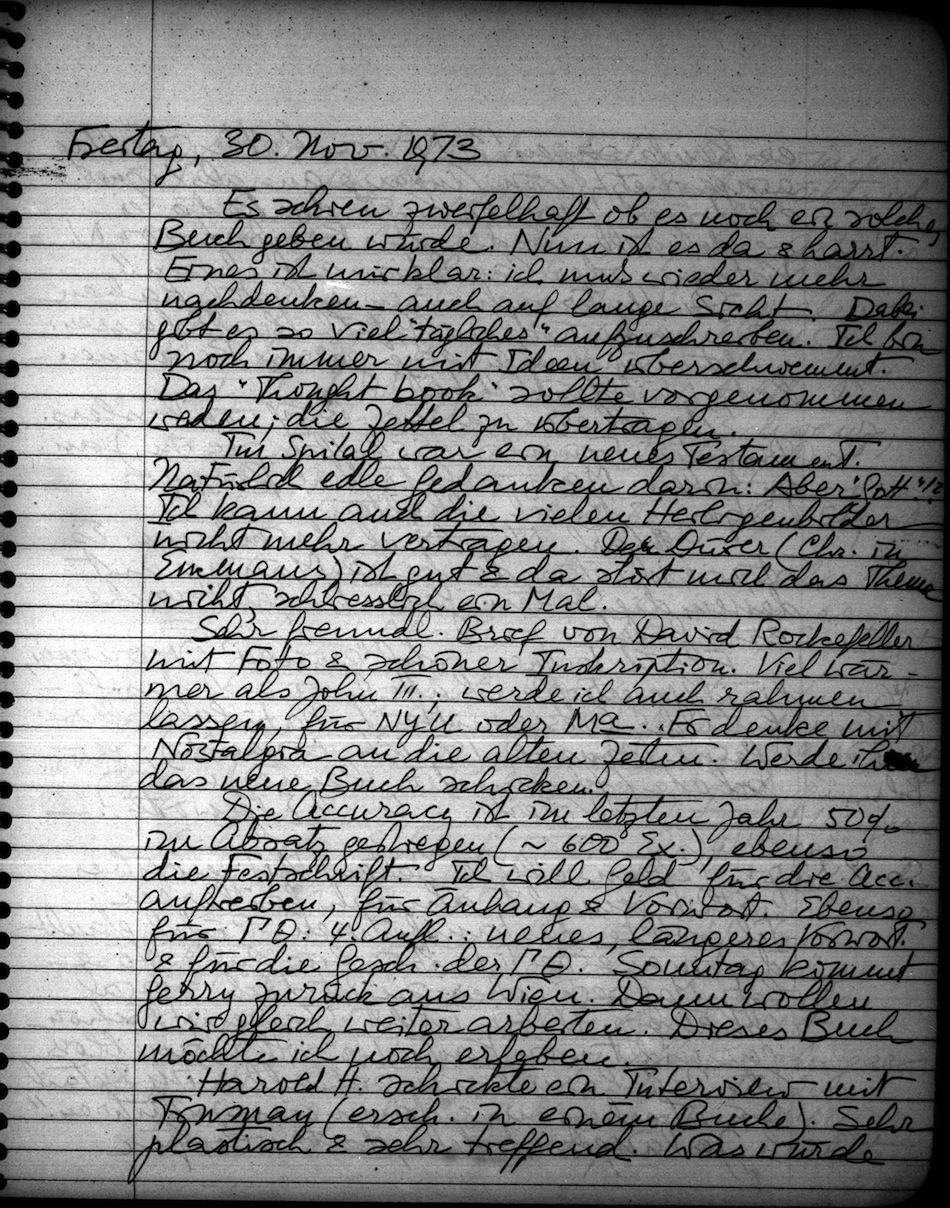 Freitag, 30. Nov. 1973
Es schien zweifelhaft ob es noch ein solches
Buch geben würde. Nun ist es da & harrt.
Eines ist mir klar: ich muss wieder mehr
nachdenken – auch auf lange Sicht. Dabei
gibt es so viel "tägliches" aufzuschreiben. Ich bin
noch immer mit Ideen überschwemmt.
Das "Thought book" sollte vorgenommen
werden; die Zettel zu übertragen.
Im Spital war ein neues Testament.
Natürlich edle Gedanken darin: Aber "Gott"!?
Ich kann auch die vielen Heiligenbilder
nicht mehr vertragen. Der Dürer (Chr. in
Emmaus) ist gut & da stört mich das Thema
nicht, schliesslich ein Mal.
Sehr freundl. Brief von David Rockefeller
mit Foto & schöner Inskription. Viel wär-
mer als John III.; werde ich auch rahmen
lassen, für NYU oder Ma. Er denke mit
Nostalgia an die alten Zeiten. Werde ihm
das neue Buch schicken.
Die Accuracy ist im letzten Jahr 50%
im Absatz gestiegen (~ 600 Ex.), ebenso
die Festschrift. Ich will Geld für die Acc.
auftreiben, für Anhang & Vorwort. Ebenso
für ΓΘ. 4. Aufl.: neues, längeres Vorwort.
& für die Gesch. der ΓΘ. Sonntag kommt
Gerry zurück aus Wien. Dann wollen
wir gleich weiter arbeiten. Dieses Buch
möchte ich noch erleben.
Harold H. schickte ein Interview mit
(ersch. in einem Buche). Sehr
plastisch & sehr treffend. Was würde